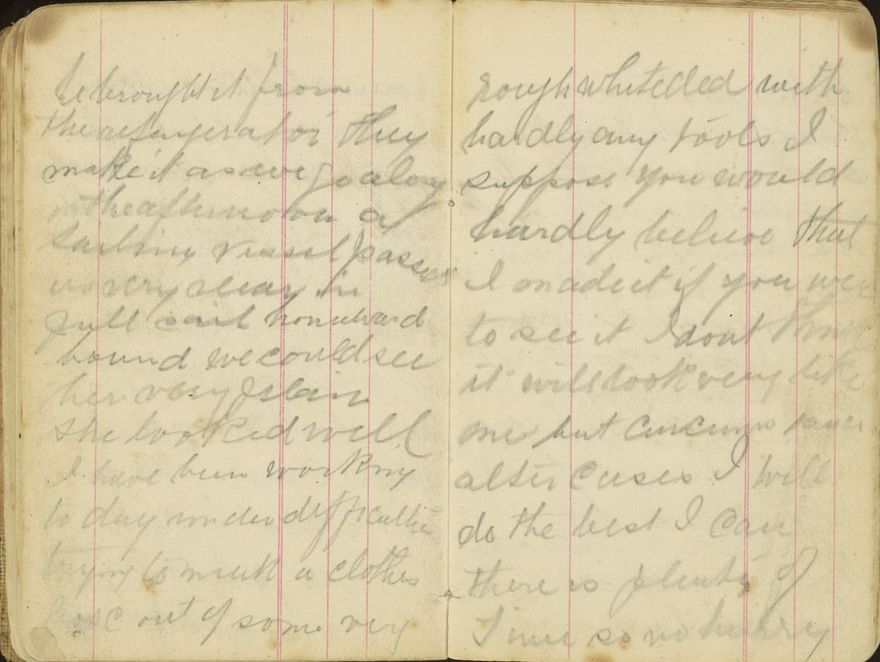 he brought it from
the refrigerator they
make it as we go along
in the afternoon a
sailing vessel passed
us very near in
full sail homeward
bound we could see
her very plain
she looked well
I have been working
to day under difficulties
trying to make a clothes
out of some very
rough whited ded with
hardly any tools I
suppose you would
hardly believe that
I made it if you were
to see it I dont think
it will look very like
me but circumstances
alter cases I will
do the best I can
there is plenty of
Time so no hurry